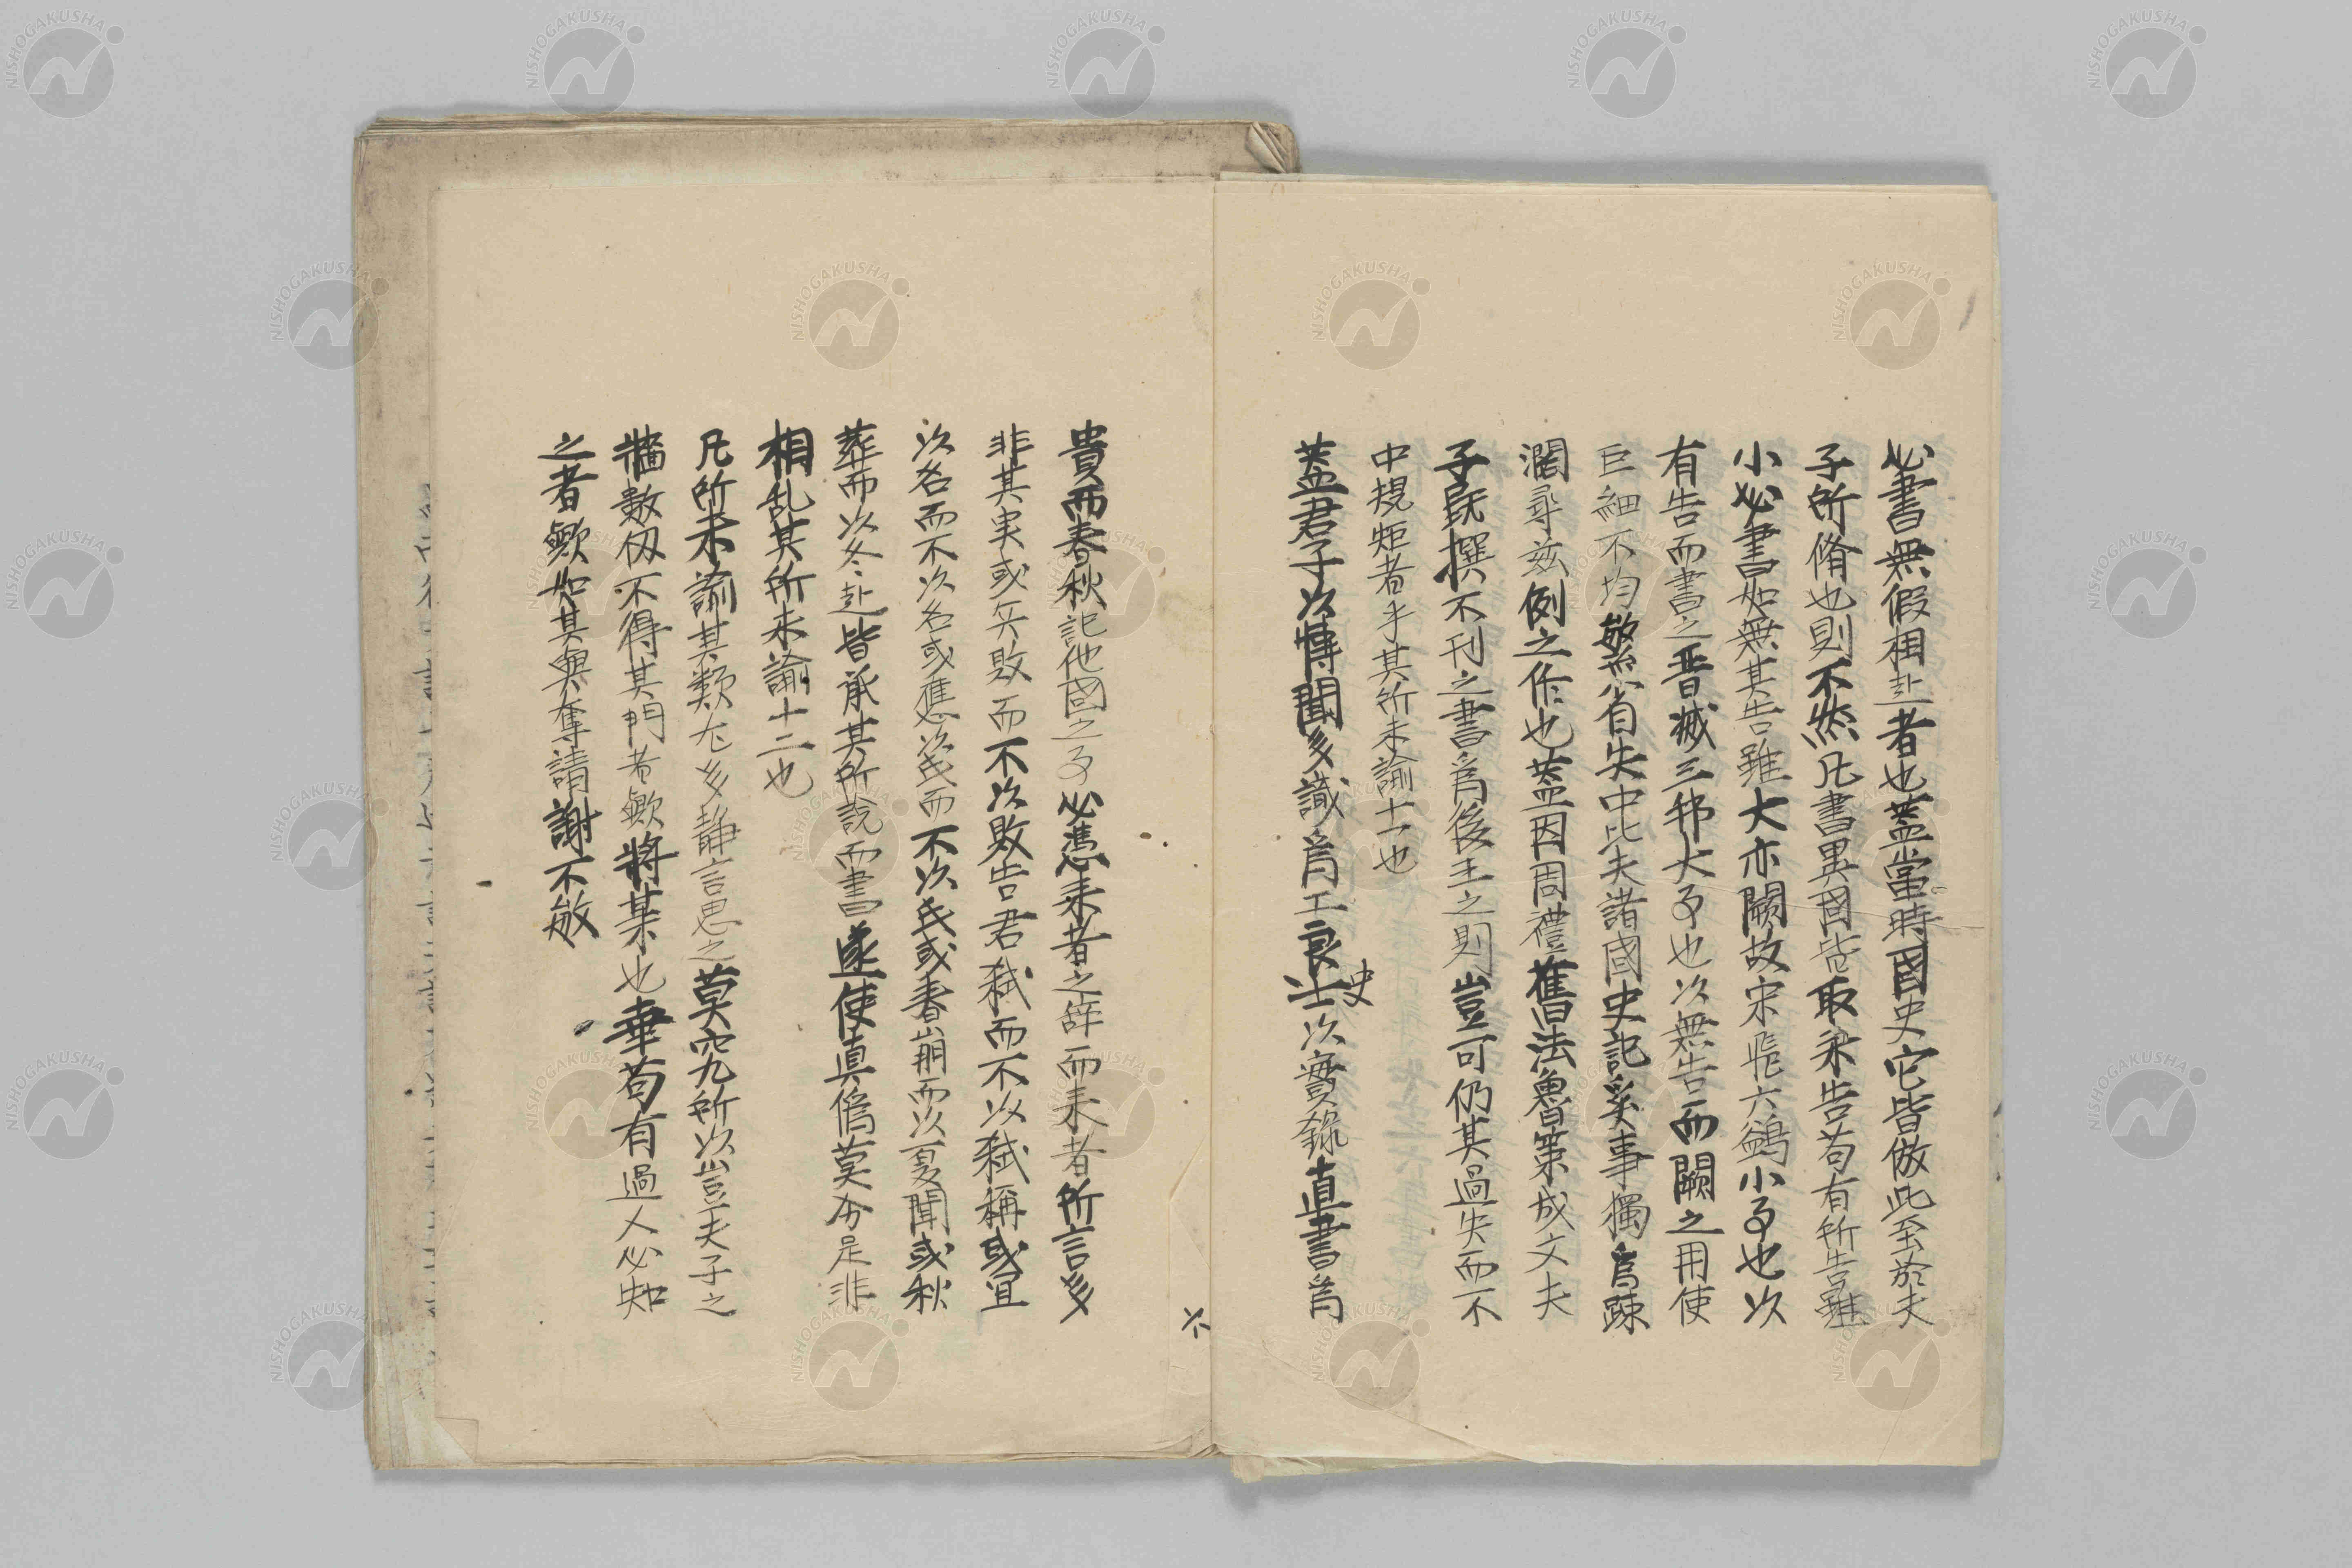 必書無假相赴者也蓋當時國史它皆倣此至於夫
子所脩也則不然凡書異國皆取来告苟有所告雖
小必書如無其告雖大亦闕故宋飛六鷁小事也以
有告而書之晋滅三邦大事也以無告而闕之用使
巨細不均繁省失中比夫諸國史記奚事獨為踈
濶尋玆例之作也蓋因周禮舊法魯策成文夫
子既撰不刊之書為後王之則豈可仍其過失而不
中規矩者乎其所未諭十一也
蓋君子以博聞多識為工良史士以實錄直書為
貴而春秋記他國之事必憑来者之辞而来者所言多
非其実或兵敗而不以敗告君弑而不以弑稱或冝
以名而不以名或應以氏而不以氏或春崩而以夏聞或秋
葬而以冬赴皆承其所説而書遂使真偽莫分是非
相乱其所未諭十二也
凡所未諭其類尤多静言思之莫究所以豈夫子之
牆数仭不得其門者歟将某也幸苟有過人必知
之者歟如其與奪請謝不敏
NISHOGAKUSHA